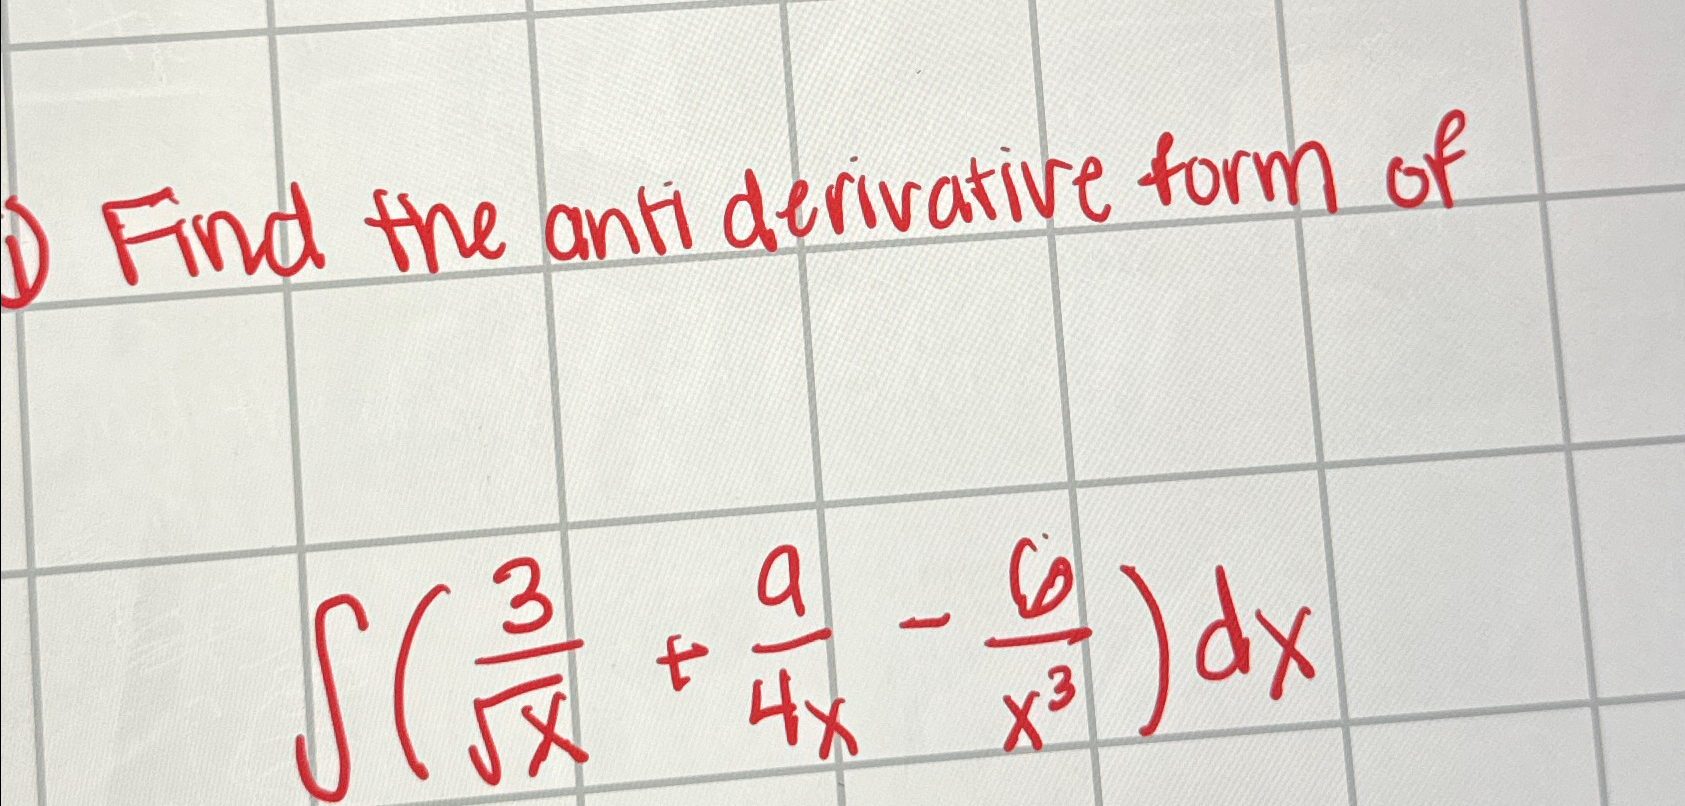 ① Find the anti derivative form of
∫ ( 3/√x + 9/4x - 6/x³ ) dx